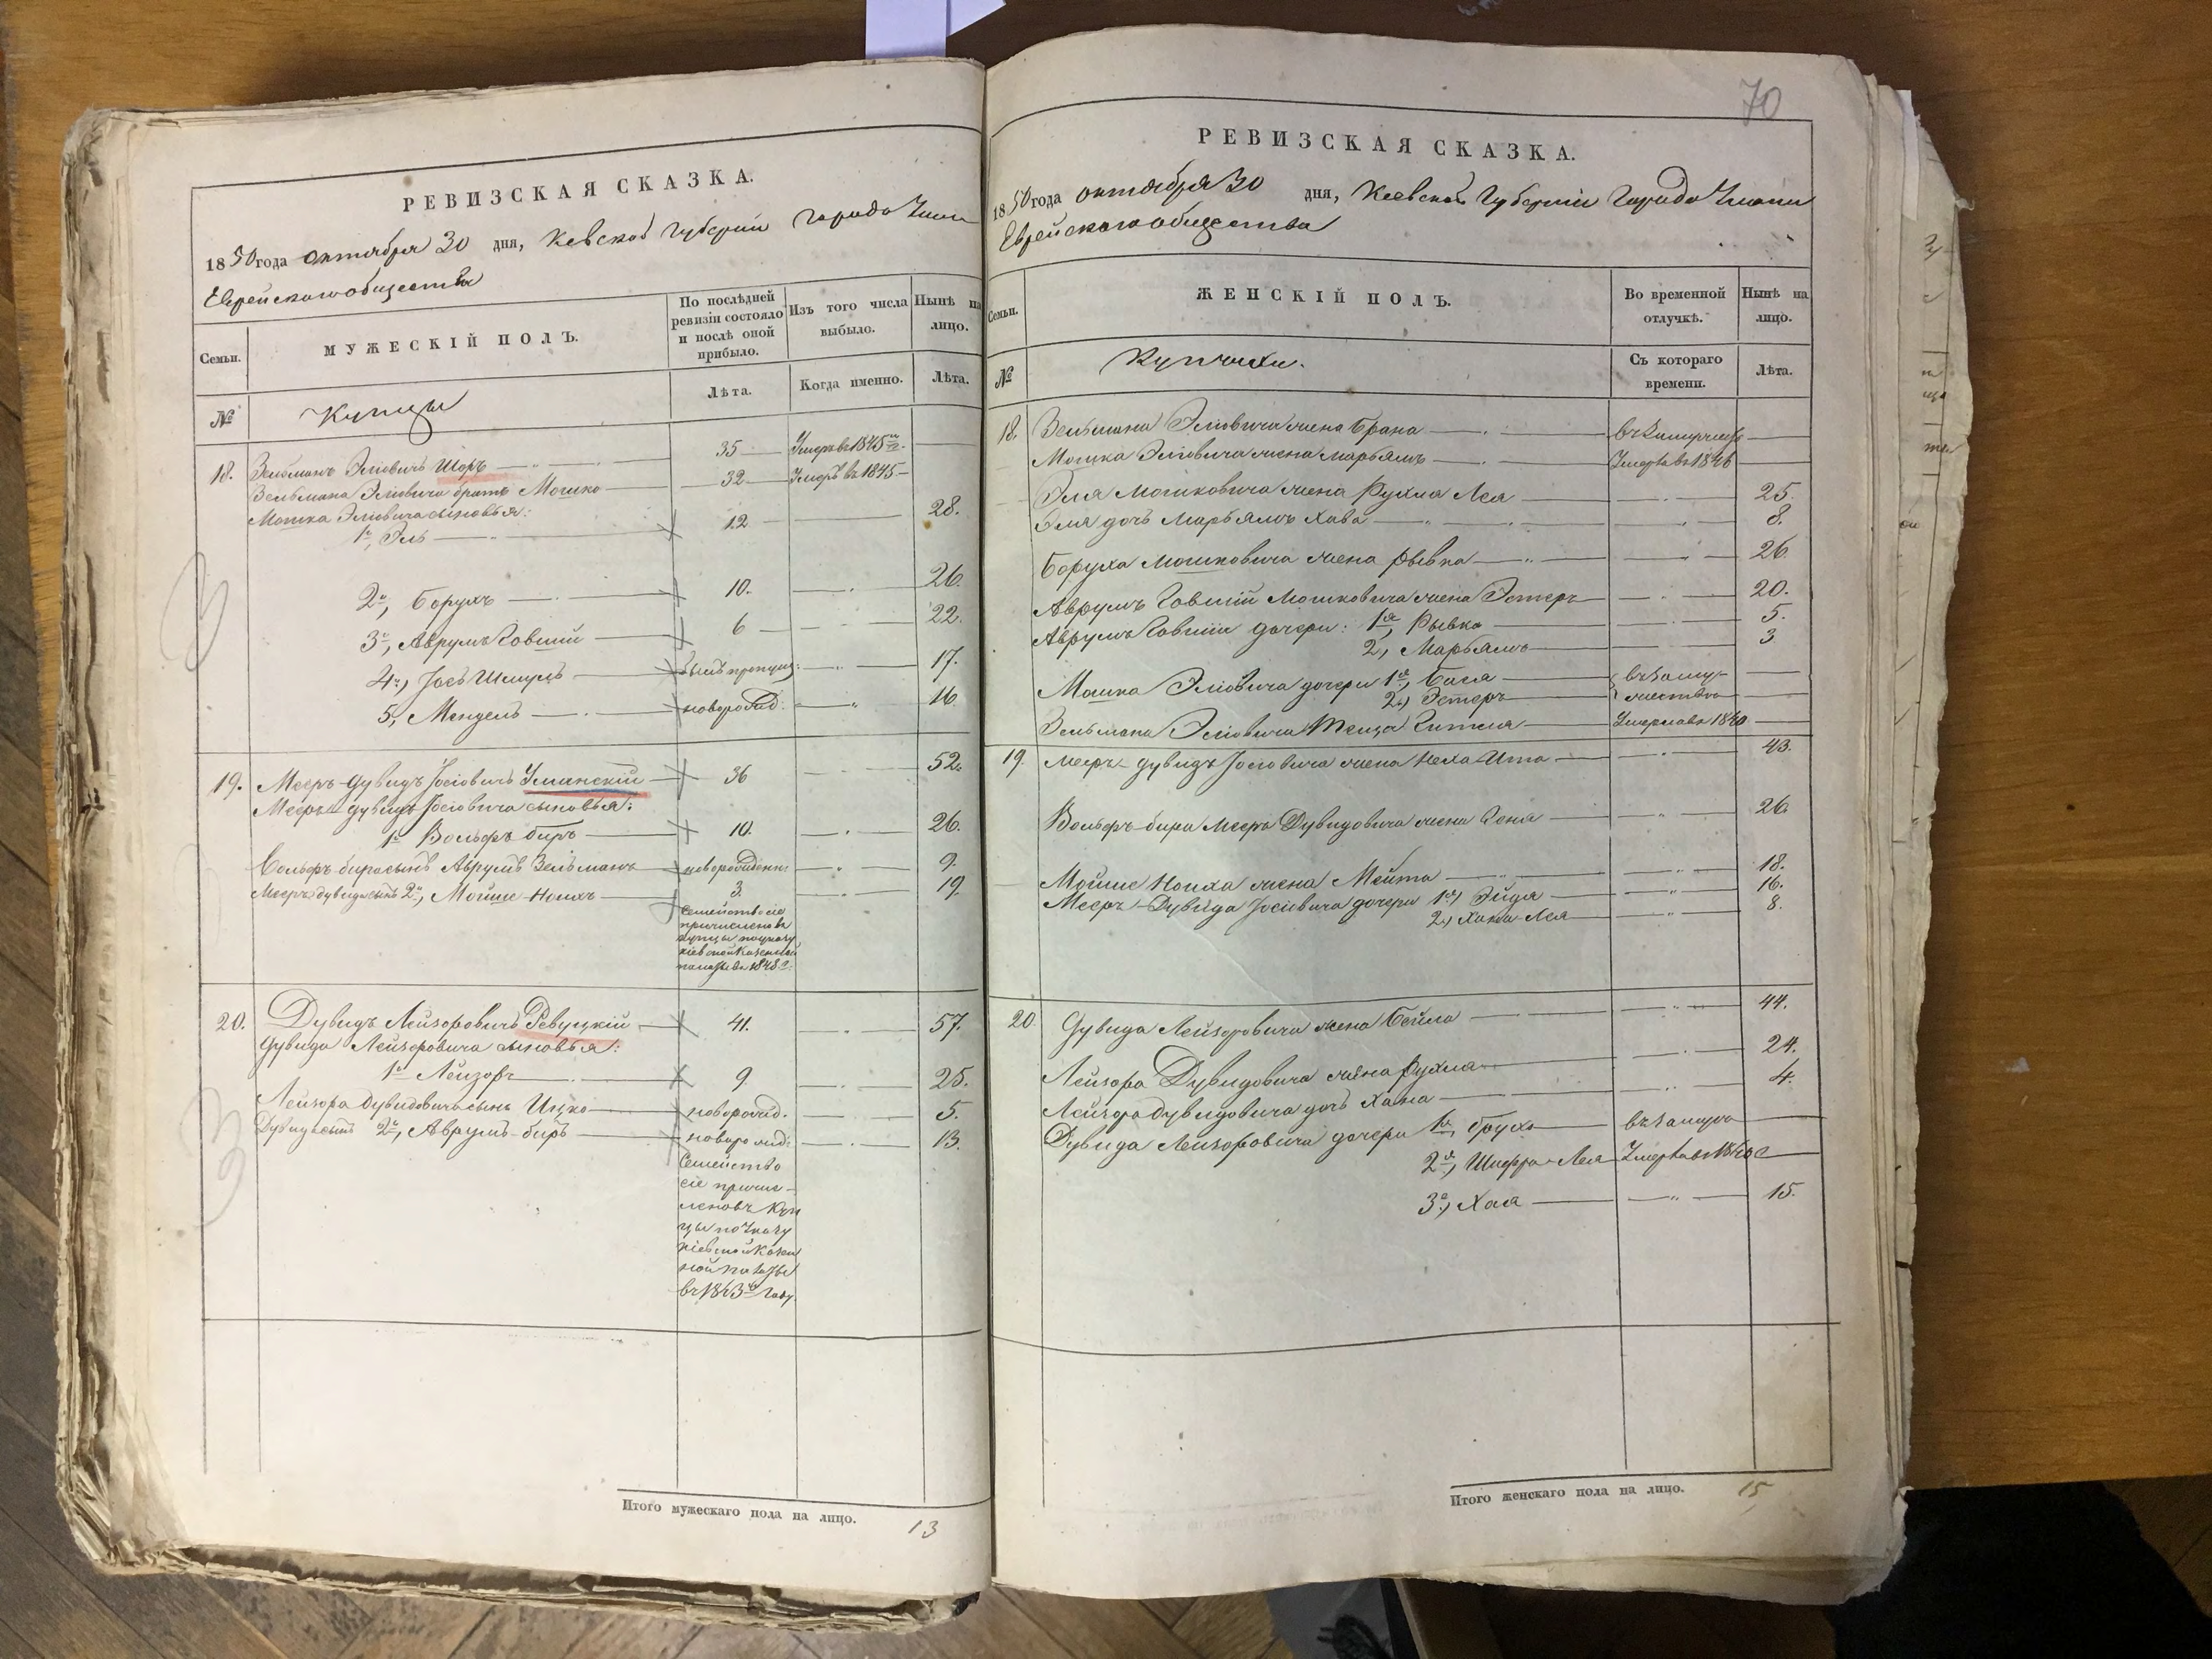 РЕВИЗСКАЯ СКАЗКА.
1850 года октября 30 дня, Киевской Губернии города Умани
Еврейскаго общества
Семьи.
МУЖЕСКІЙ ПОЛЪ.
По послѣдней ревизіи состояло и послѣ оной прибыло.
Изъ того числа выбыло.
Нынѣ на лицо.
№
Купцы
Лѣта.
Когда именно.
Лѣта.
18. Зельманъ Эліовичъ Шоръ 35 Умеръ въ 1845
Зельмана Эліовича братъ Мошко 32 Умеръ въ 1845
Мошка Эліовича сыновья:
1й, Эль 12 28.
2й, Борухъ 10. 26.
3й, Аврумъ Говшій 6 22.
4й, Іосъ Шмуль былъ пропущ: 17.
5, Мендель новорожд. 16
19. Мееръ-Дувидъ Іосіовичъ Уманскій 36 52.
Мееръ-Дувида Іосіовича сыновья:
1й Вольфъ-биръ 10. 26.
Вольфъ-бира сынъ Аврумъ Зельманъ новорожденн: 9.
Мееръ-Дувида сынъ 2й, Мойше-Ноихъ 3. 19
Семейство сіе
причислено въ
купцы по указу
кіевской Казенной
палаты въ 1848 г:
20. Дувидъ Лейзоровичъ Ревуцкій 41. 57.
Дувида Лейзоровича сыновья:
1й Лейзоръ 9. 25.
Лейзора Дувидовича сынъ Ицко новорожд. 5.
Дувида сынъ 2й, Аврумъ-биръ новорожд: 13.
Семейство
сіе причис-
лено въ Куп
цы по Указу
кіевской Казен
ной палаты
въ 1843 году
Итого мужескаго пола на лицо. 13
70
РЕВИЗСКАЯ СКАЗКА.
1850 года октября 30 дня, Киевской Губерніи Города Умани
Еврейскаго общества
Семьи.
ЖЕНСКІЙ ПОЛЪ.
Во временной отлучкѣ.
Нынѣ на лицо.
№
Купчихи.
Съ котораго времени.
Лѣта.
18. Зельмана Эліовича жена Брана
Мошка Эліовича жена Марьямъ Умерла въ 1846
Эля Мошковича жена Рухля Лея 25.
Эля дочь Марьямъ Хава 8.
Боруха Мошковича жена Рывка 26.
Аврумъ Говшій Мошковича жена Эстеръ 20.
Аврумъ Говшія дочери: 1я, Рывка 5.
2, Марьямъ 3
Мошка Эліовича дочери 1я, Бася въ замуже-
2я, Эстеръ жествѣ
Зельмана Эліовича теща Гитля Умерла въ 1840
19. Мееръ-Дувида Іосіовича жена Неха Ита 43.
Вольфъ-бира Мееръ Дувидовича жена Соня 26.
Мойше Ноиха жена Мейта 18.
Мееръ-Дувида Іосіовича дочери 1я, Эйдя 16.
2я, Хана-Лея 8.
20. Дувида Лейзоровича жена Бейла 44.
Лейзора Дувидовича жена Рухля 24.
Лейзора Дувидовича дочь Хана 4.
Дувида Лейзоровича дочери 1я, Бруха
2я, Шифра-Лея
3я, Хая 15.
Итого женскаго пола на лицо. 15